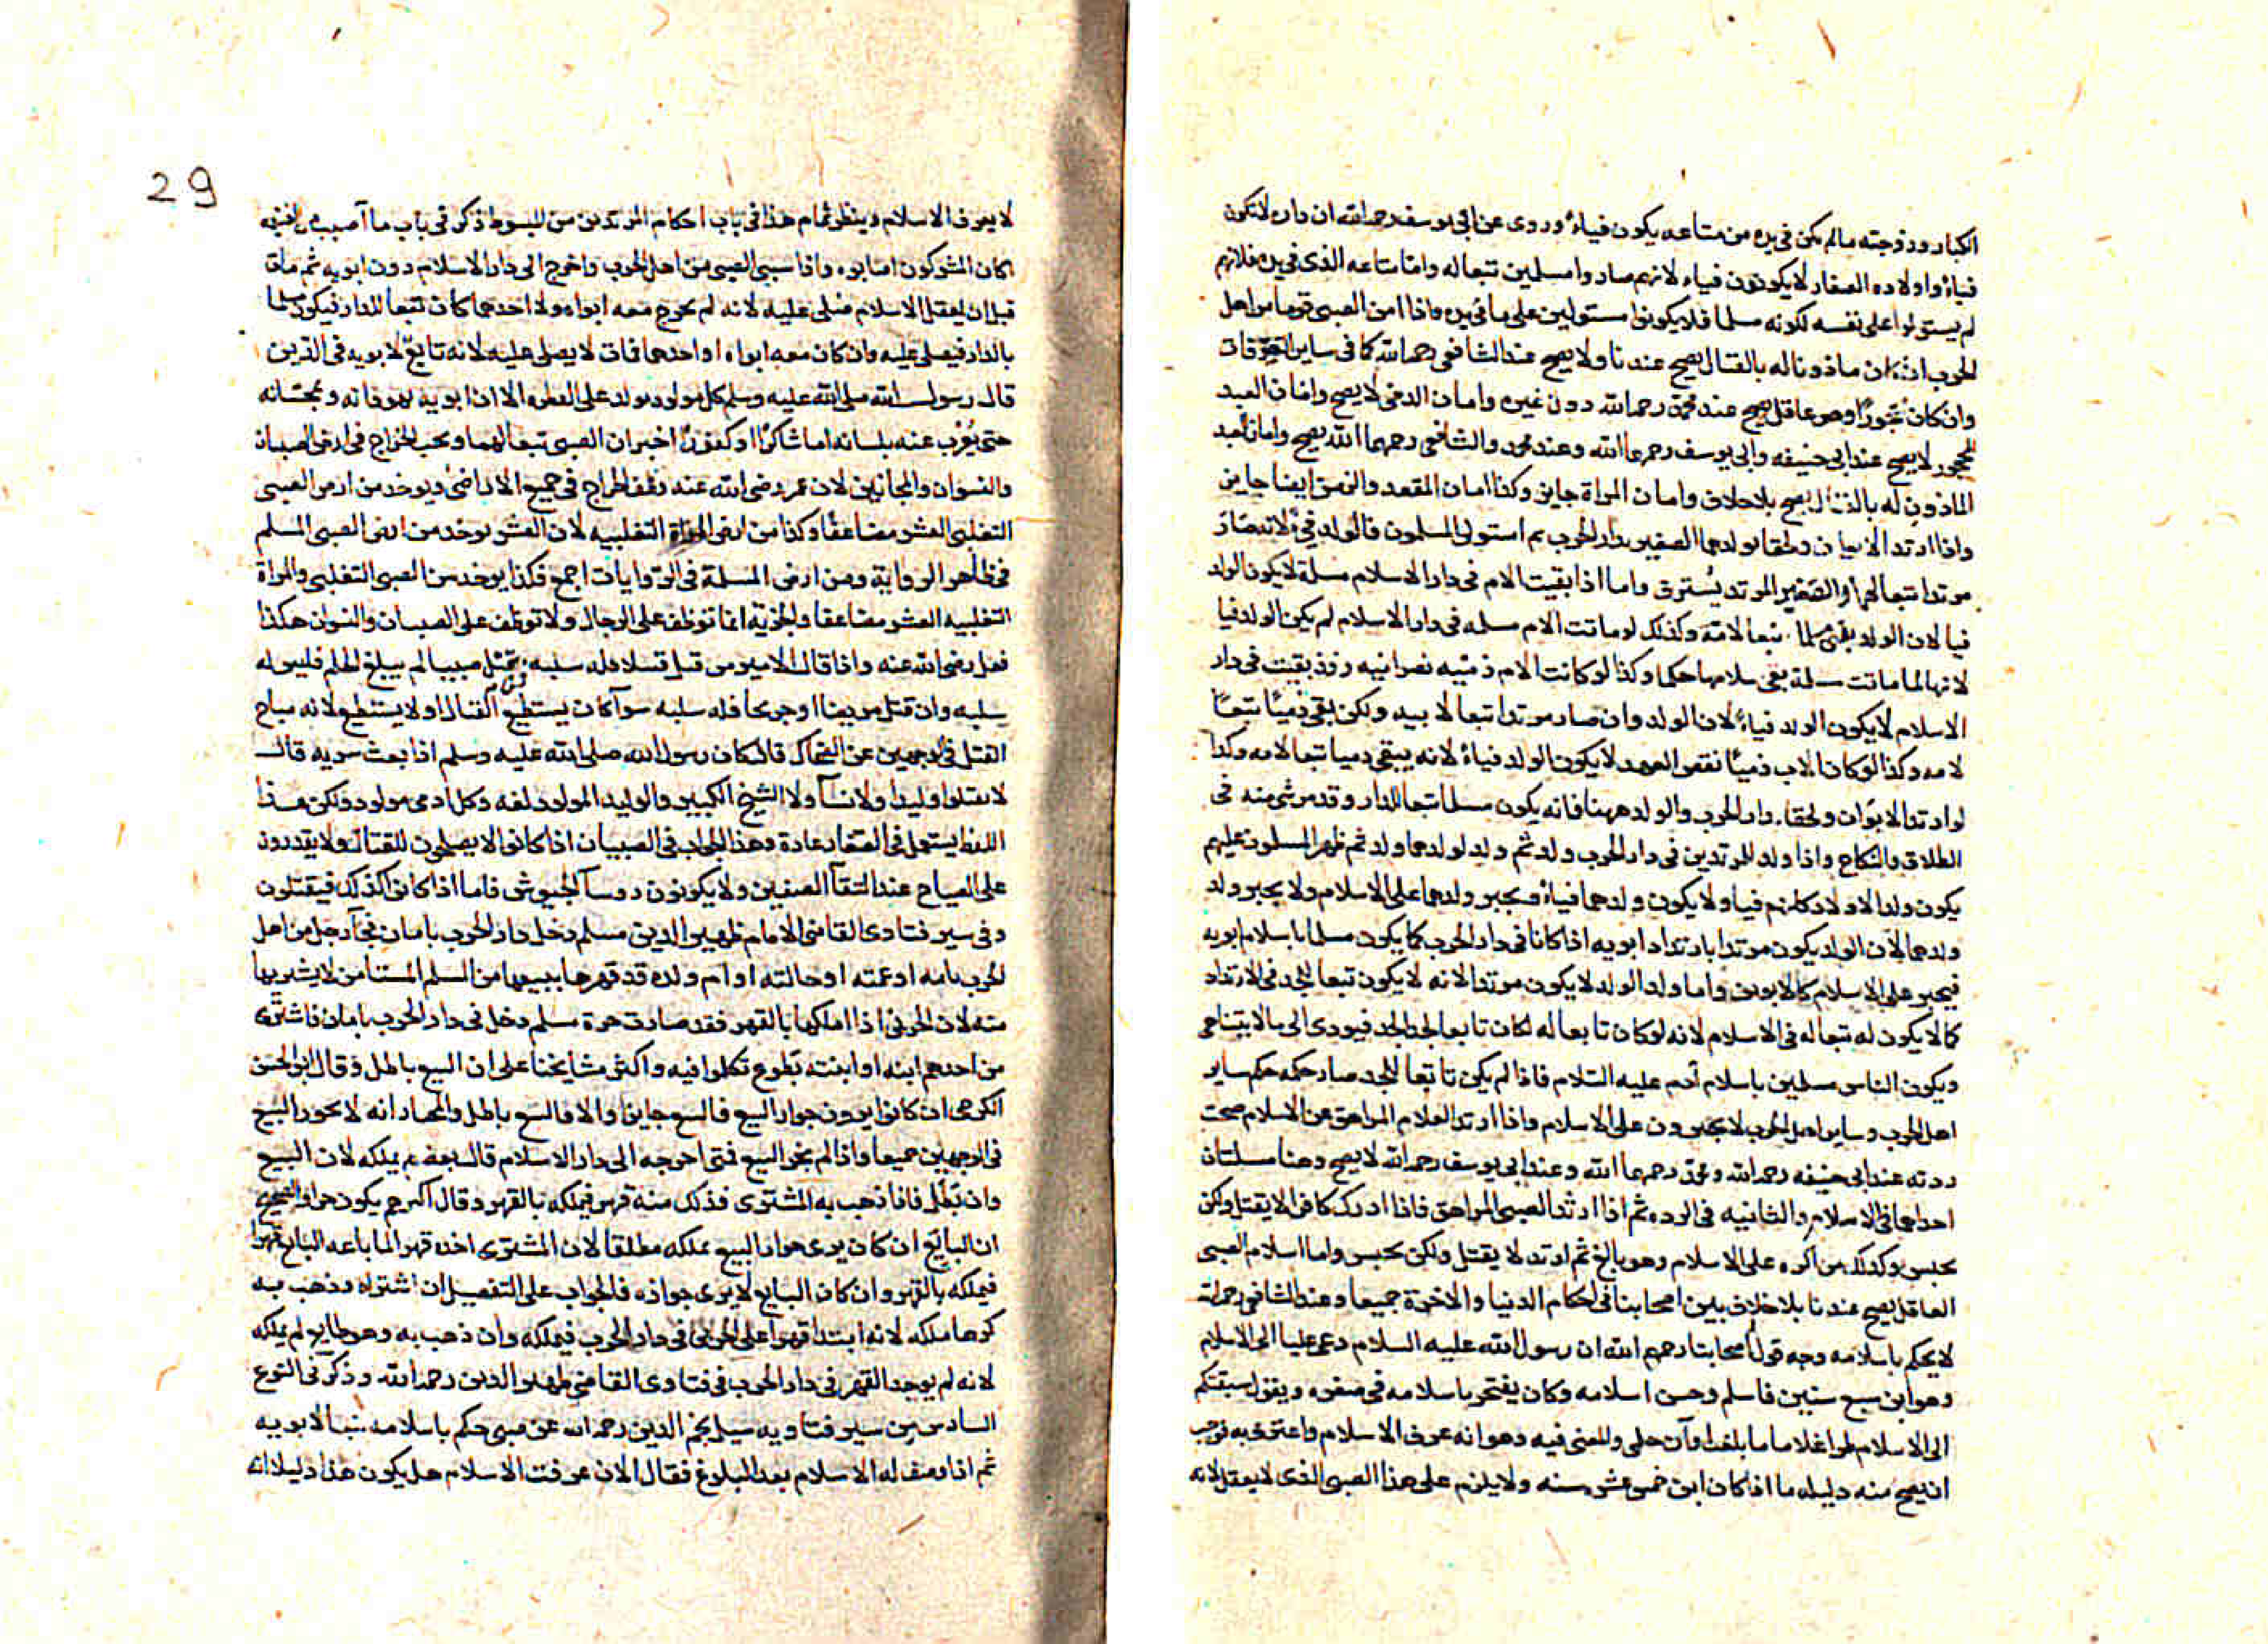 الكبار وزوجته مالم يكن في يده من متاعه يكون فياء وروى عن ابي يوسف رحمه الله ان داره لا تكون
فياء واولاده الصغار لا يكونون فياء لانهم صاروا مسلمين تبعا له واما متاعه الذي في يده فلانهم
لم يستولوا على نفسه لكونه مسلما فلا يكونوا مستولين على ما في يده واذا امن الصبي قوما من اهل
الحرب ان كان ماذونا له بالقتال يصح عندنا ولا يصح عند الشافعي رحمه الله كما في ساير التصرفات
وان كان محجورا وهو عاقل يصح عند محمد رحمه الله دون غيره وامان الذمي لا يصح وامان العبد
المحجور لا يصح عند ابي حنيفه وابي يوسف رحمهما الله وعند محمد والشافعي رحمهما الله يصح وامان العبد
الماذون له بالقتال يصح بلا خلاف وامان المراة جايز وكذا امان المقعد والزمن ايضا جايز
واذا ارتد الابوان ولحقا بولدهما الصغير بدار الحرب ثم استولى المسلمون فالولد فيء لانه صار
مرتدا تبعا لهما والصغير المرتد يسترق واما اذا بقيت الام في دار الاسلام مسلمة لا يكون الولد
فيا لان الولد بقي مسلما تبعا لامه وكذلك لو ماتت الام مسلمه في دار الاسلام لم يكن الولد فيا
لانها لما ماتت مسلمة بقي سلامها حكما وكذا لو كانت الام ذميه نصرانيه وقد بقيت في دار
الاسلام لا يكون الولد فياء لان الولد وان صار مرتدا تبعا لابيه ولكن بقي ذميا تبعا
لامه وكذا لو كان الاب ذميا نقض العهد لا يكون الولد فياء لانه يبقى دميا تبعا لامه وكذا
لو ارتد الابوان ولحقا دار الحرب والولد ههنا فانه يكون مسلما تبعا للدار وقد مر شي منه في
الطلاق والنكاح واذا ولد للمرتدين في دار الحرب ولد ثم ولد لولدهما ولد ثم ظهر المسلمون عليهم
يكون ولد الاولاد كلهم فيا ولا يكون ولدهما فياء ويجبر ولدهما على الاسلام ولا يجبر ولد
ولدهما لان الولد يكون مرتدا بارتداد ابويه اذا كانا في دار الحرب كما يكون مسلما باسلام ابويه
فيجبر على الاسلام كالابوين واما ولد الولد لا يكون مرتدا لانه لا يكون تبعا للجد في الارتداد
كما لا يكون له تبعا له في الاسلام لانه لو كان تابعا له لكان تابعا لجد الجد فيودى الى ما لا يتناهى
ويكون الناس مسلمين باسلام آدم عليه السلام فاذا لم يكن تابعا للجد صار حكمه حكم ساير
اهل الحرب وساير اهل الحرب لا يجبرون على الاسلام واذا ارتد الغلام المراهق عن الاسلام صحت
ردته عند ابي حنيفه رحمه الله ومحمد رحمهما الله وعند ابي يوسف رحمه الله لا يصح وهنا مسلتان
احداهما في الاسلام والثانيه في الرده ثم اذا ارتد الصبي المراهق فاذا ادرك كافرا لا يقتل ولكن
يحبس وكذلك من اكره على الاسلام وهو بالغ ثم ارتد لا يقتل ولكن يحبس واما اسلام الصبي
العاقل يصح عندنا بلا خلاف بين اصحابنا في احكام الدنيا والاخرة جميعا وعند الشافعي رحمه الله
لا يحكم باسلامه وجه قول اصحابنا رحمهم الله ان رسول الله عليه السلام دعى عليا الى الاسلام
وهو ابن سبع سنين فاسلم وحسن اسلامه وكان يفتخر باسلامه في صغره ويقول سبقتكم
الى الاسلام طرا غلاما ما بلغت اوان حلمي والمعنى فيه وهو انه عرف الاسلام واعترف به فوجب
ان يصح منه دليله ما اذا كان ابن خمس عشر سنه ولا يلزم على هذا الصبي الذي لا يعقل لانه
29
لا يعرف الاسلام وينظر تمام هذا في باب احكام المرتدين من المبسوط ذكر في باب ما اصيب من الغنيمه
كان المشركون اصابوه واذا سبي الصبي من اهل الحرب واخرج الى دار الاسلام دون ابويه ثم مات
قبل ان يعقل الاسلام صلى عليه لانه لم يخرج معه ابواه ولا احدهما كان تبعا للدار فيكون مسلما
بالدار فيصلى عليه وان كان معه ابواه او احدهما فمات لا يصلى عليه لانه تابع لابويه في الدين
قال رسول الله صلى الله عليه وسلم كل مولود يولد على الفطره الا ان ابويه يهودانه ويمجسانه
حتى يعرب عنه بلسانه اما شاكرا او كفورا اخبر ان الصبي تبعا لهما ويجب الخراج في ارض الصبيان
والنسوان والمجانين لان عمر رضى الله عنه وظف الخراج في جميع الاراضي ويوخذ من ارض الصبي
التغلبي العشر مضاعفا وكذا من ارض المراة التغلبيه لان العشر يوخذ من ارض الصبي المسلم
في ظاهر الرواية ومن ارض المسلمة في الروايات اجمع فكذا يوخذ من الصبي التغلبي والمراة
التغلبيه العشر مضاعفا والجزيه انما توظف على الرجال ولا توظف على الصبيان والنسوان هكذا
فعل رضى الله عنه واذا قال الامير من قتل قتيلا فله سلبه فقتل صبيا لم يبلغ الحلم فليس له
سلبه وان قتل مريضا او جريحا فله سلبه سوآ كان يستطيع القتال او لا يستطيع لانه مباح
القتل في الوجهين عن الضحاك قال كان رسول الله صلى الله عليه وسلم اذا بعث سريه قال
لا تقتلوا وليدا ولا نسآ ولا الشيخ الكبير والوليد المولود لغه وكل ادمى مولود ولكن هذا
اللفظ يستعمل في الصغار عادة وهذا الجواب في الصبيان اذا كانوا لا يصلحون للقتال ولا يقدرون
على الصياح عند التقآ الصفين ولا يكونون روسآ الجيوش فاما اذا كانوا كذلك فيقتلون
وفي سير فتاوى القاضي الامام ظهير الدين مسلم دخل دار الحرب بامان فجآ رجل من اهل
الحرب بامه او عمته او خالته او ام ولده قد قهرها يبيعها من المسلم المستامن لا يشتريها
منه لان الحربي اذا املكها بالقهر فقد صارت حرة مسلم دخل في دار الحرب بامان فاشترى
من احدهم ابنه او ابنته بطوع تكلموا فيه واكثر مشايخنا على ان البيع باطل وقال ابو الحسن
الكرخي ان كانوا يرون جواز البيع فالبيع جايز والا فالبيع باطل والمختار انه لا يجوز البيع
في الوجهين جميعا واذا لم يجز البيع فمتى اخرجه الى دار الاسلام قال بعضهم يملكه لان البيع
وان بطل فاذا ذهب به المشترى فذلك منه قهر فيملكه بالقهر وقال اكثرهم يكون حرا والصحيح
ان البايع ان كان يرى جواز البيع يملكه مطلقا لان المشترى اخذه قهرا لما باعه البايع قهرا
فيملكه بالقهر وان كان البايع لا يرى جوازه فالجواب على التفصيل ان اشتراه وذهب به
كرها ملكه لانه ابتدا قهر على الحربي في دار الحرب فيملكه وان ذهب به وهو طايع لم يملكه
لانه لم يوجد القهر في دار الحرب في فتاوى القاضي ظهير الدين رحمه الله وذكر في النوع
السادس من سير فتاويه سيل نجم الدين رحمه الله عن صبي حكم باسلامه تبعا لابويه
ثم اذا وصف له الاسلام بعد البلوغ فقال الان عرفت الاسلام هل يكون هذا دليلا انه